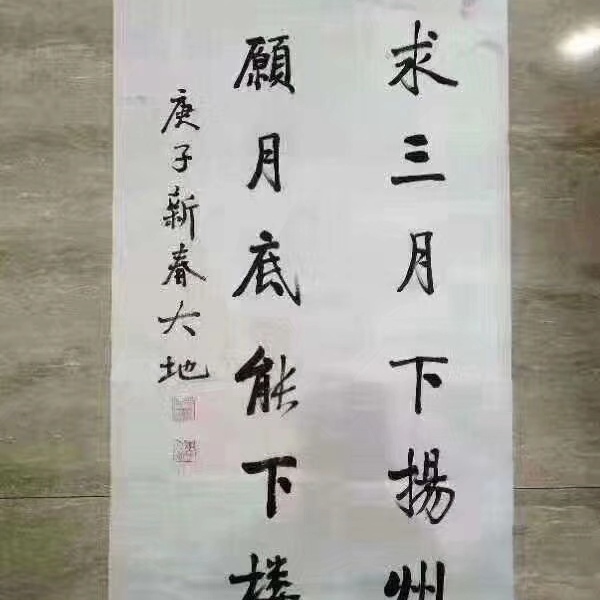 求三月下揚州
願月底能下楼
庚子新春大地